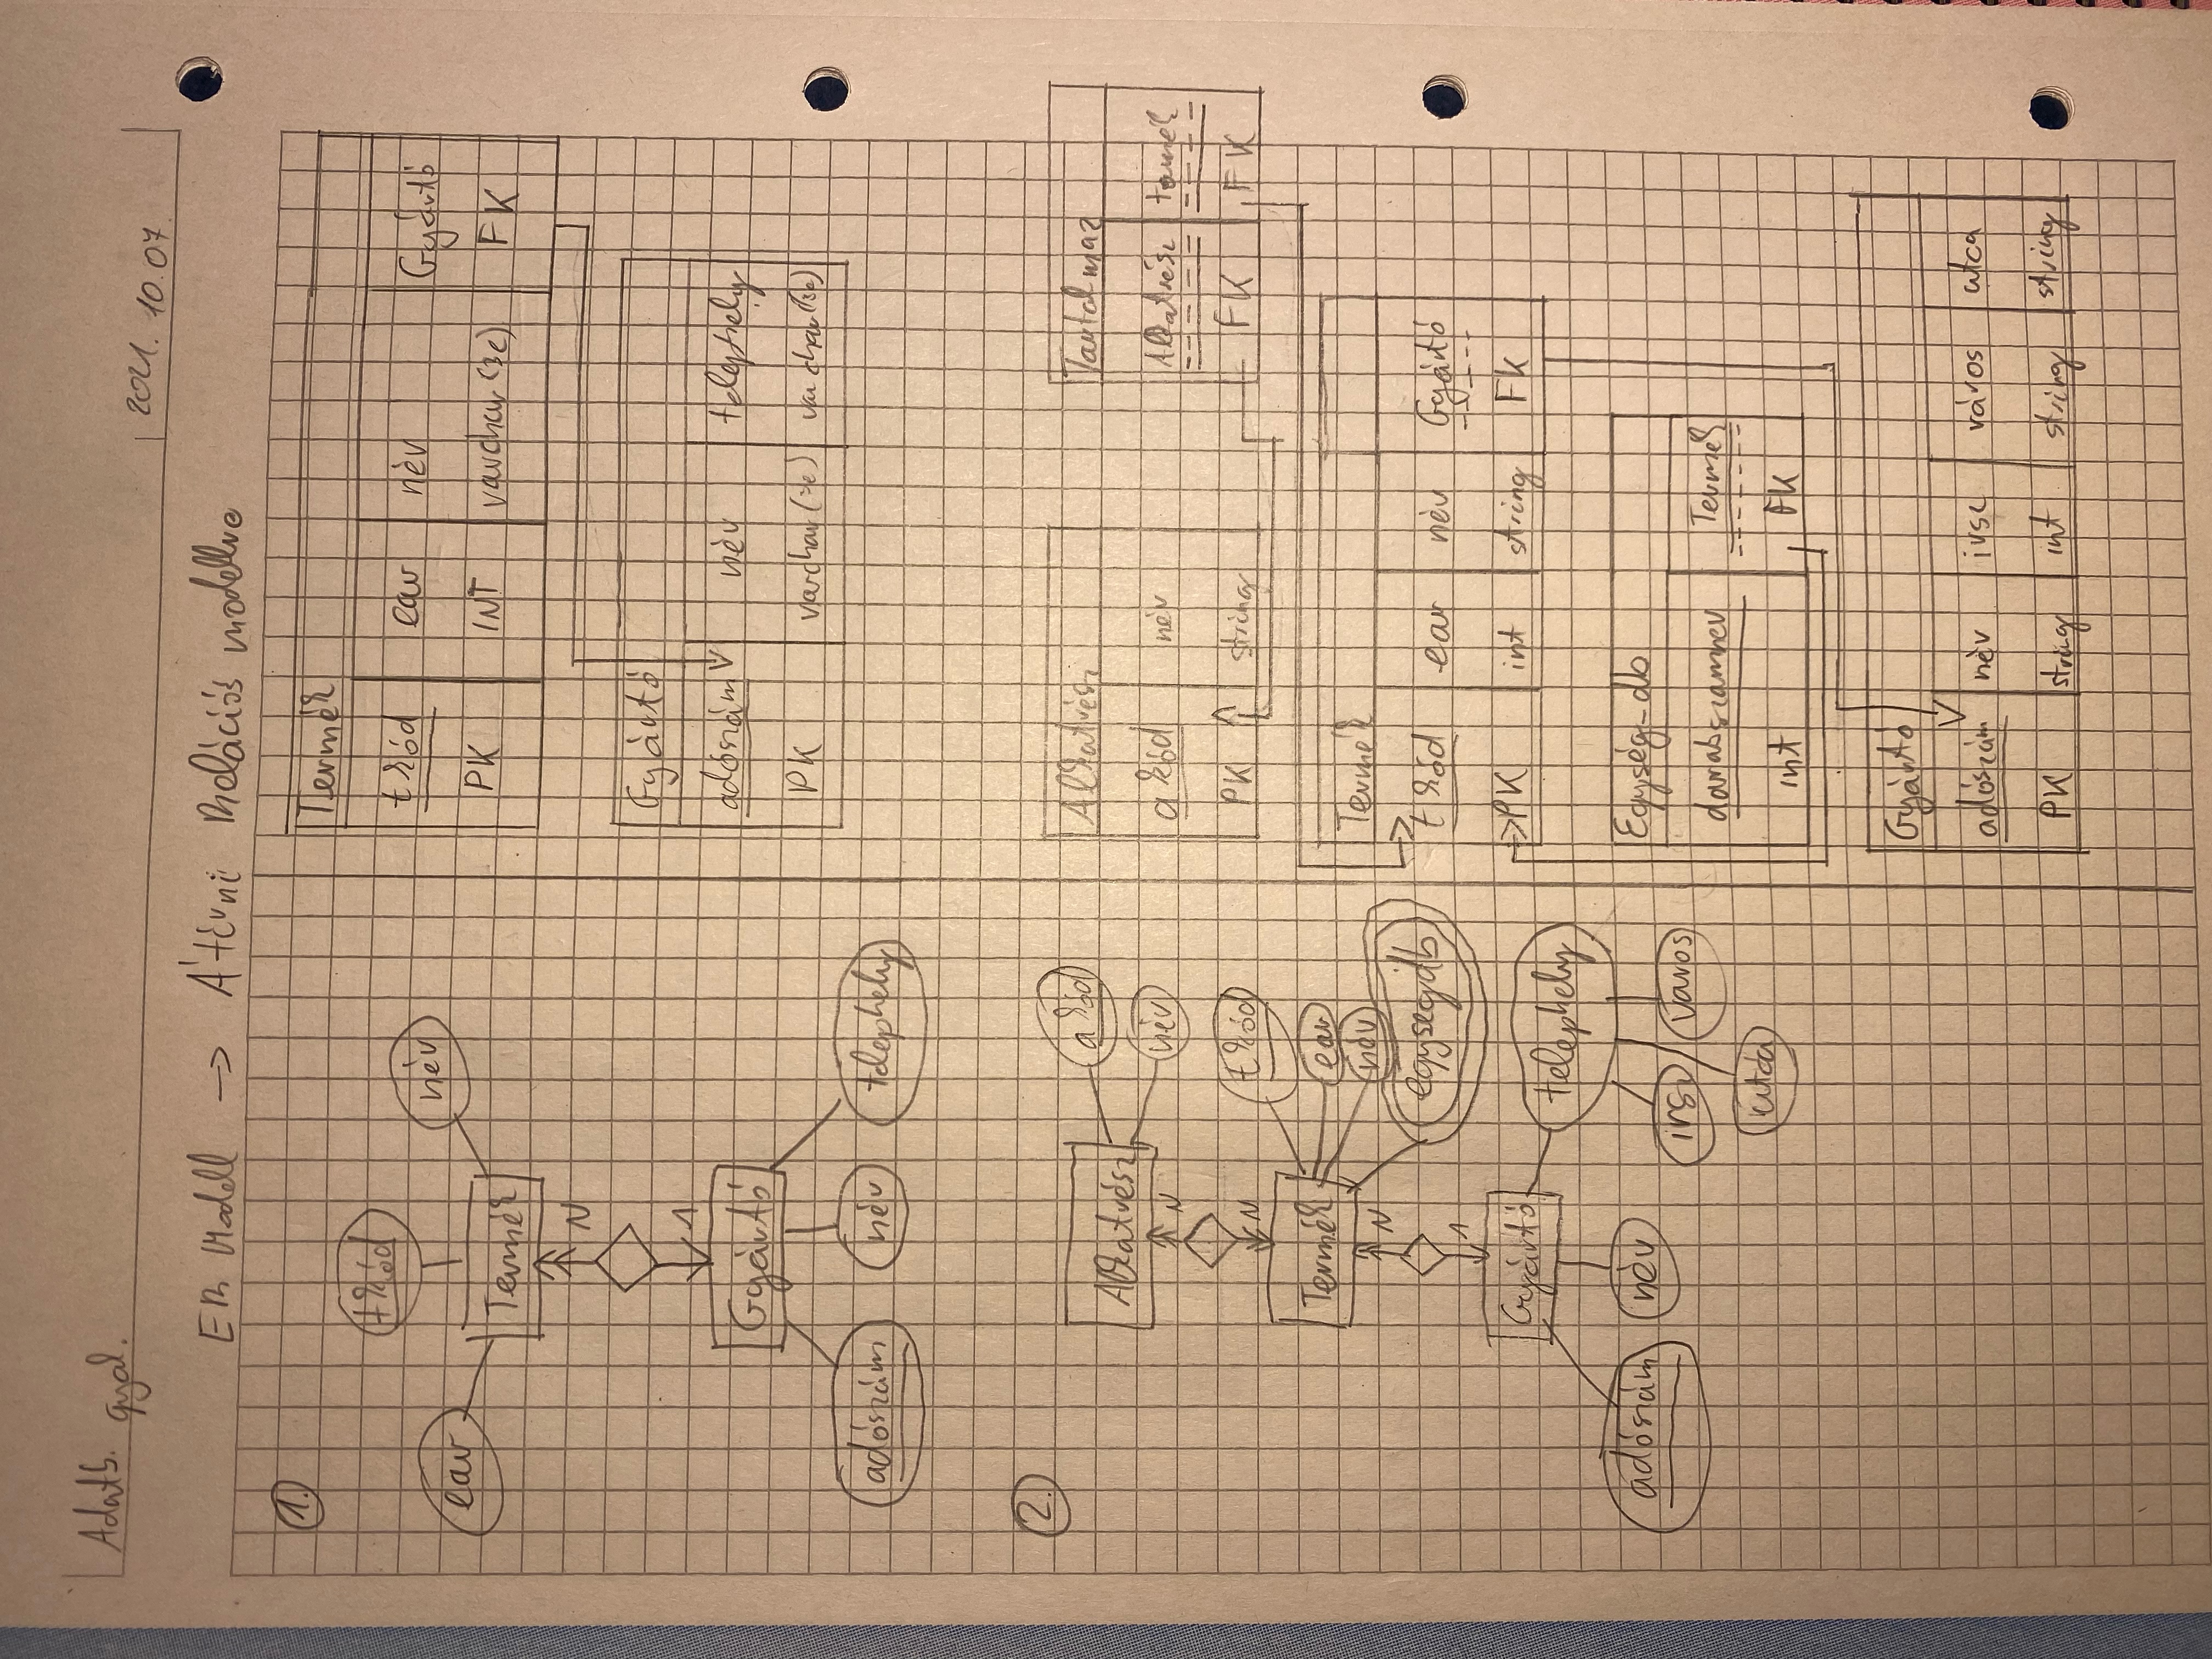 Adatb. gyak.
2021. 10.07.
ER Modell → Átírni Relációs modellre
1.
tkód
ear
név
Termék
N
1
Gyártó
adószám
név
telephely
Termék
tkód ear név Gyártó
PK INT varchar(32) FK
Gyártó
adószám név telephely
PK varchar(32) varchar(32)
2.
Alkatrész
akód
név
N
N
tkód
Termék
ear
név
egysegdb
N
1
Gyártó
telephely
adószám
név
irsz
varos
utca
Alkatrész
akód név
PK string
Tartalmaz
Alkatrész termék
FK FK
Termék
tkód ear név Gyártó
PK int string FK
Egység-db
darabszamnev Termék
int FK
Gyártó
adószám név irsz város utca
PK string int string string